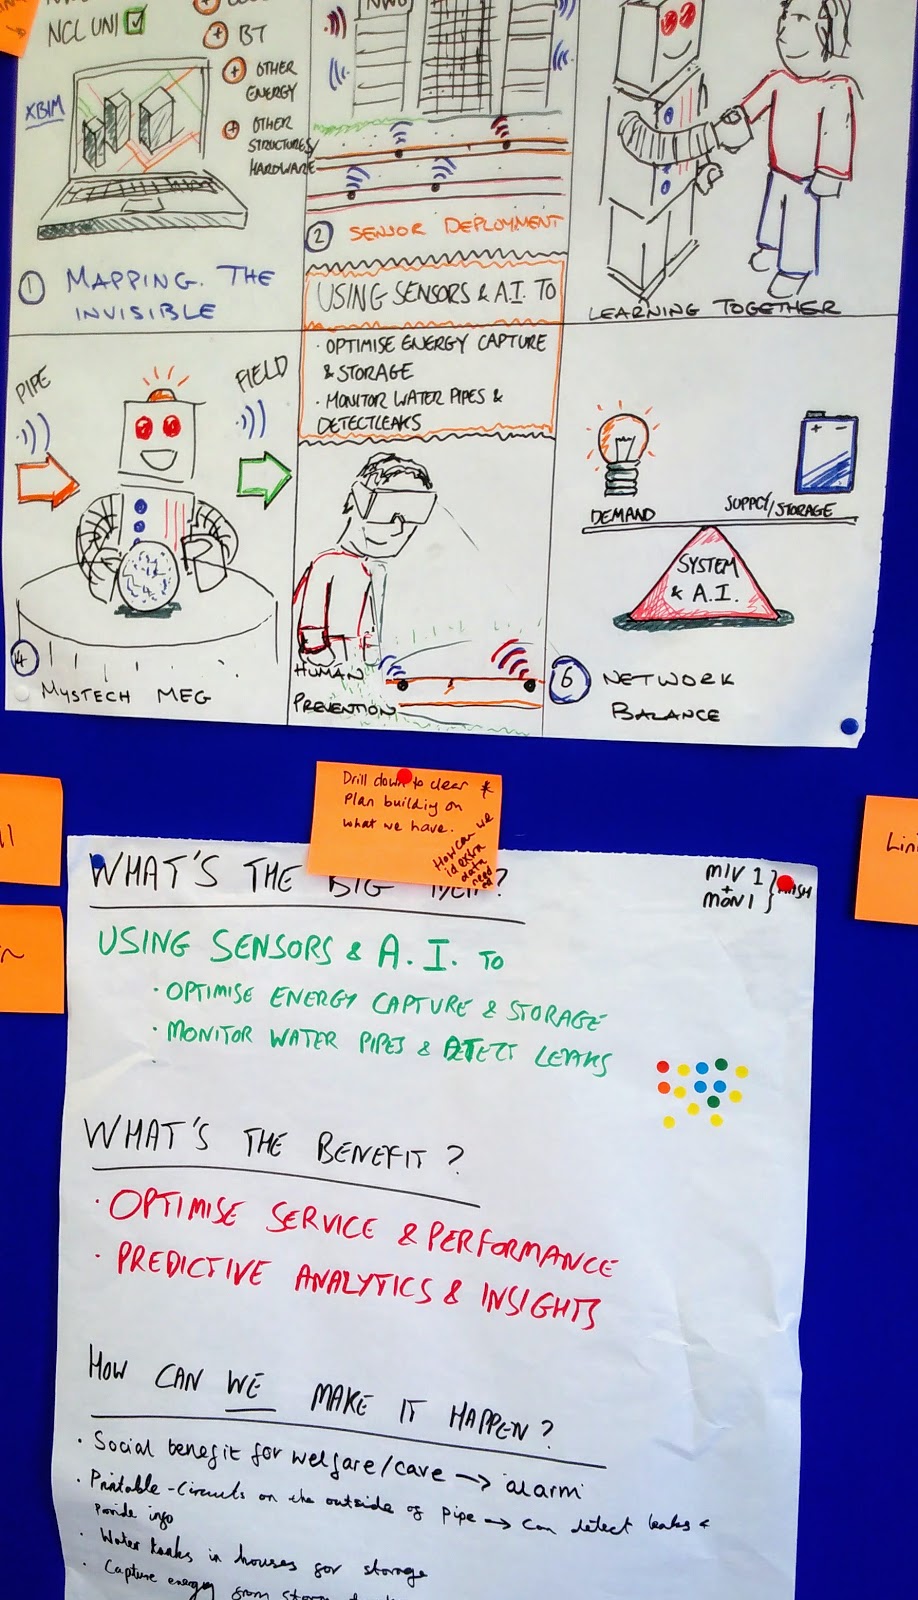 NCL UNI
BT
OTHER
ENERGY
OTHER
STRUCTURES/
HARDWARE
XBIM
1 MAPPING THE
INVISIBLE
NWG
2 SENSOR DEPLOYMENT
USING SENSORS & A.I. TO
· OPTIMISE ENERGY CAPTURE
& STORAGE
· MONITOR WATER PIPES &
DETECTLEAKS
LEARNING TOGETHER
PIPE
FIELD
4
MYSTECH MEG
HUMAN
PREVENTION
DEMAND
SUPPLY/STORAGE
+ -
SYSTEM
& A.I.
6 NETWORK
BALANCE
Drill down to clear *
Plan building on
what we have.
How can we
id extra
data
need
ed
WHAT'S THE BIG IDEA?
MIV 1
+
MON 1
USING SENSORS & A.I. TO
· OPTIMISE ENERGY CAPTURE & STORAGE
· MONITOR WATER PIPES & DETECT LEAKS
WHAT'S THE BENEFIT?
· OPTIMISE SERVICE & PERFORMANCE
· PREDICTIVE ANALYTICS & INSIGHTS
HOW CAN WE MAKE IT HAPPEN?
· Social benefit for welfare/care → alarm
· Printable-Circuits on the outside of pipe → can detect leaks &
Provide info
· Water tanks in houses for storage
· Capture energy from storm